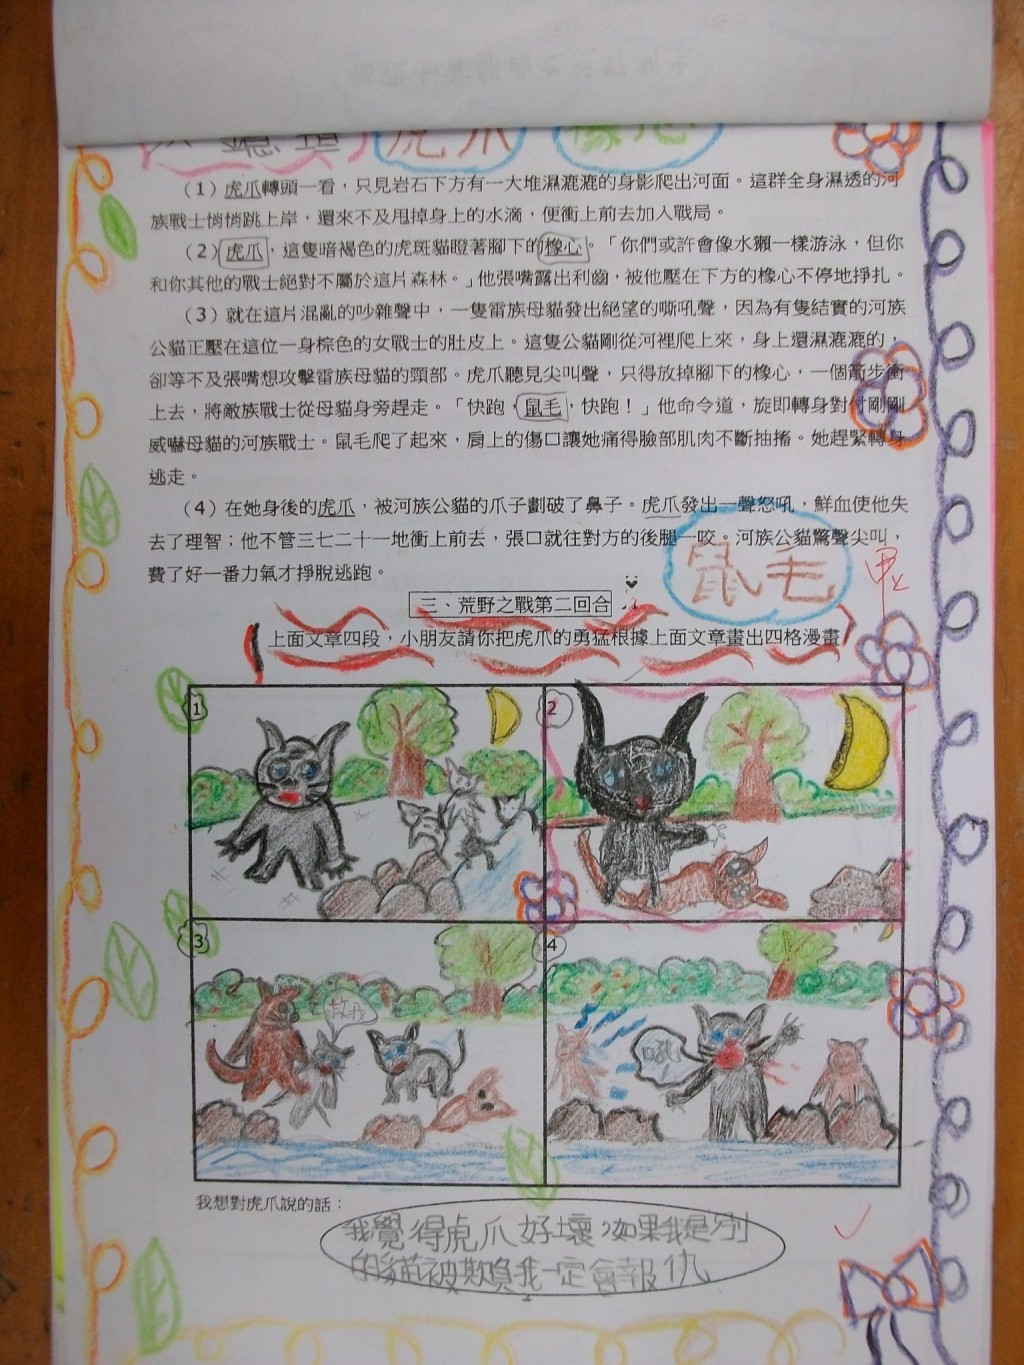 虎爪 橡心
(1)虎爪轉頭一看，只見岩石下方有一大堆濕漉漉的身影爬出河面。這群全身濕透的河
族戰士悄悄跳上岸，還來不及甩掉身上的水滴，便衝上前去加入戰局。
(2)虎爪，這隻暗褐色的虎斑貓瞪著腳下的橡心。「你們或許會像水獺一樣游泳，但你
和你其他的戰士絕對不屬於這片森林。」他張嘴露出利齒，被他壓在下方的橡心不停地掙扎。
(3)就在這片混亂的吵雜聲中，一隻雷族母貓發出絕望的嘶吼聲，因為有隻結實的河族
公貓正壓在這位一身棕色的女戰士的肚皮上。這隻公貓剛從河裡爬上來，身上還濕漉漉的，
卻等不及張嘴想攻擊雷族母貓的頸部。虎爪聽見尖叫聲，只得放掉腳下的橡心，一個箭步衝
上去，將敵族戰士從母貓身旁趕走。「快跑，鼠毛，快跑！」他命令道，旋即轉身對付剛剛
威嚇母貓的河族戰士。鼠毛爬了起來，肩上的傷口讓她痛得臉部肌肉不斷抽搐。她趕緊轉身
逃走。
(4)在她身後的虎爪，被河族公貓的爪子劃破了鼻子。虎爪發出一聲怒吼，鮮血使他失
去了理智；他不管三七二十一地衝上前去，張口就往對方的後腿一咬。河族公貓驚聲尖叫，
費了好一番力氣才掙脫逃跑。
鼠毛
甲上
三、荒野之戰第二回合
上面文章四段，小朋友請你把虎爪的勇猛根據上面文章畫出四格漫畫
1
2
3
救我
4
吼
我想對虎爪說的話：
我覺得虎爪好壞，如果我是別
的貓被欺負我一定會報仇